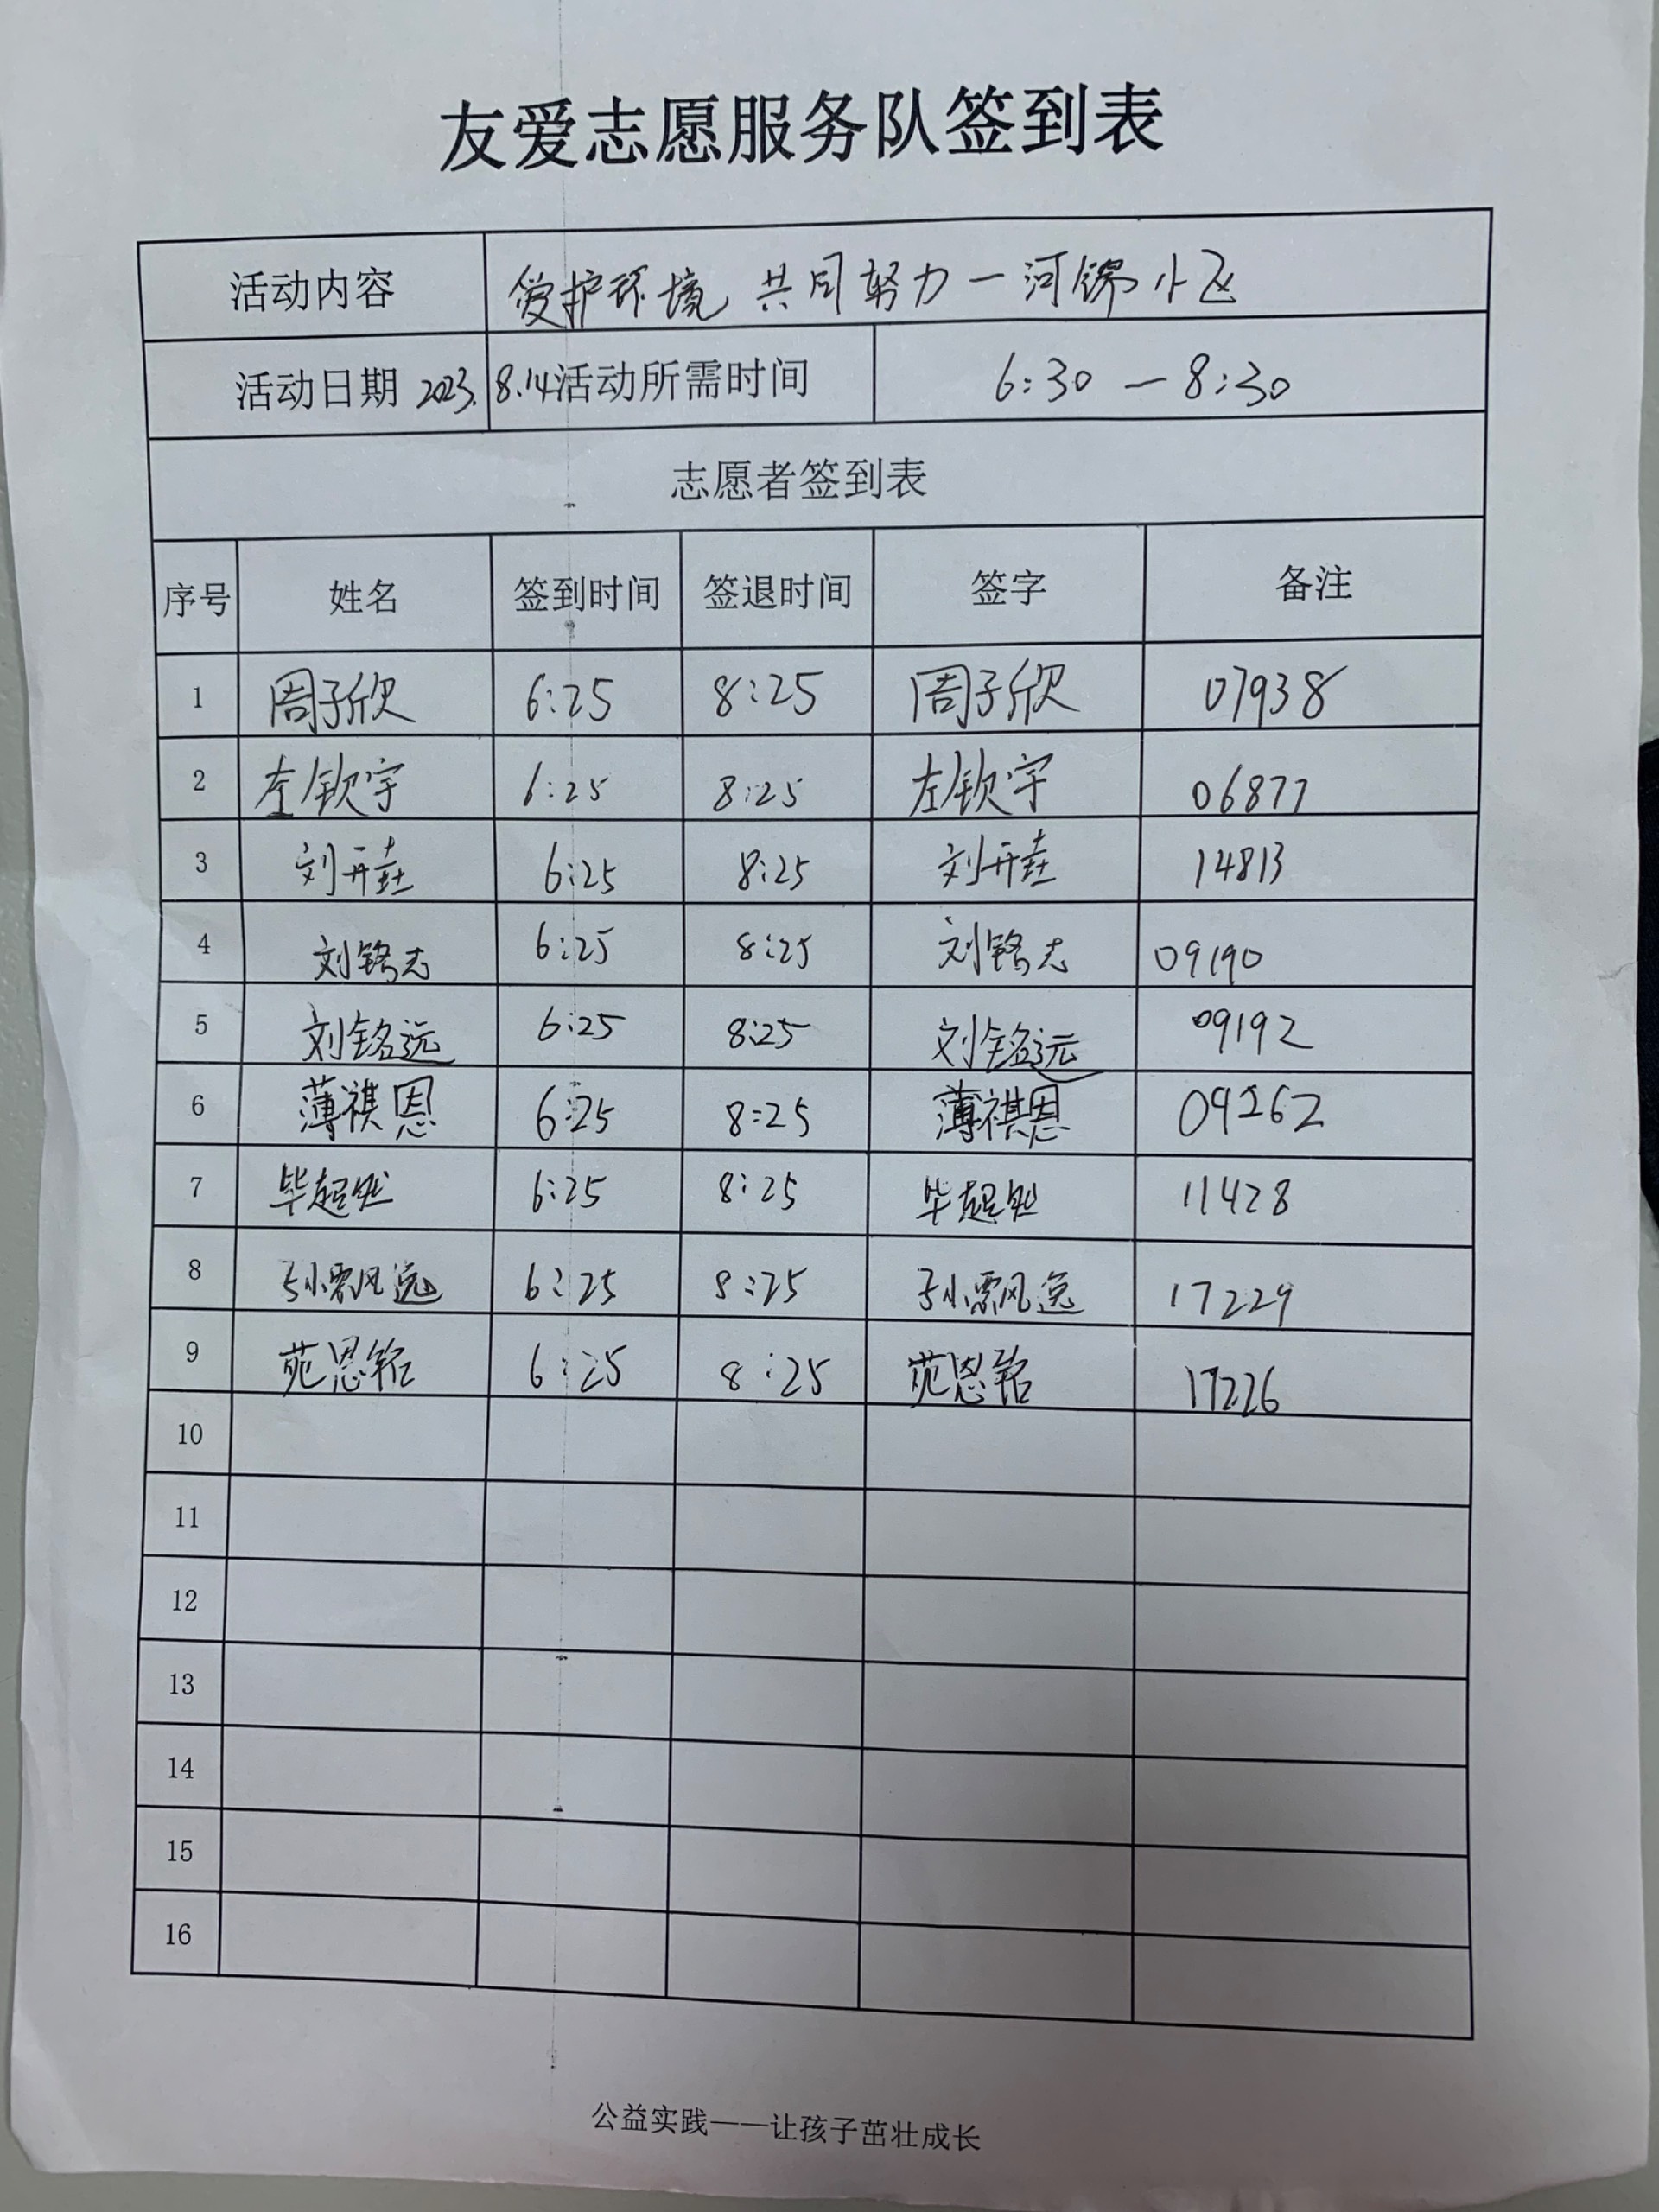 友爱志愿服务队签到表
活动内容 爱护环境 共同努力—河锦小区
活动日期 2023.8.14 活动所需时间 6:30—8:30
志愿者签到表
序号 姓名 签到时间 签退时间 签字 备注
1 周子欣 6:25 8:25 周子欣 07938
2 左钦宇 6:25 8:25 左钦宇 06877
3 刘开垚 6:25 8:25 刘开垚 14813
4 刘铭志 6:25 8:25 刘铭志 09190
5 刘铭远 6:25 8:25 刘铭远 09192
6 薄祺恩 6:25 8:25 薄祺恩 09262
7 毕超然 6:25 8:25 毕超然 11428
8 孙飘逸 6:25 8:25 孙飘逸 17229
9 苑恩铭 6:25 8:25 苑恩铭 17226
10
11
12
13
14
15
16
公益实践——让孩子茁壮成长